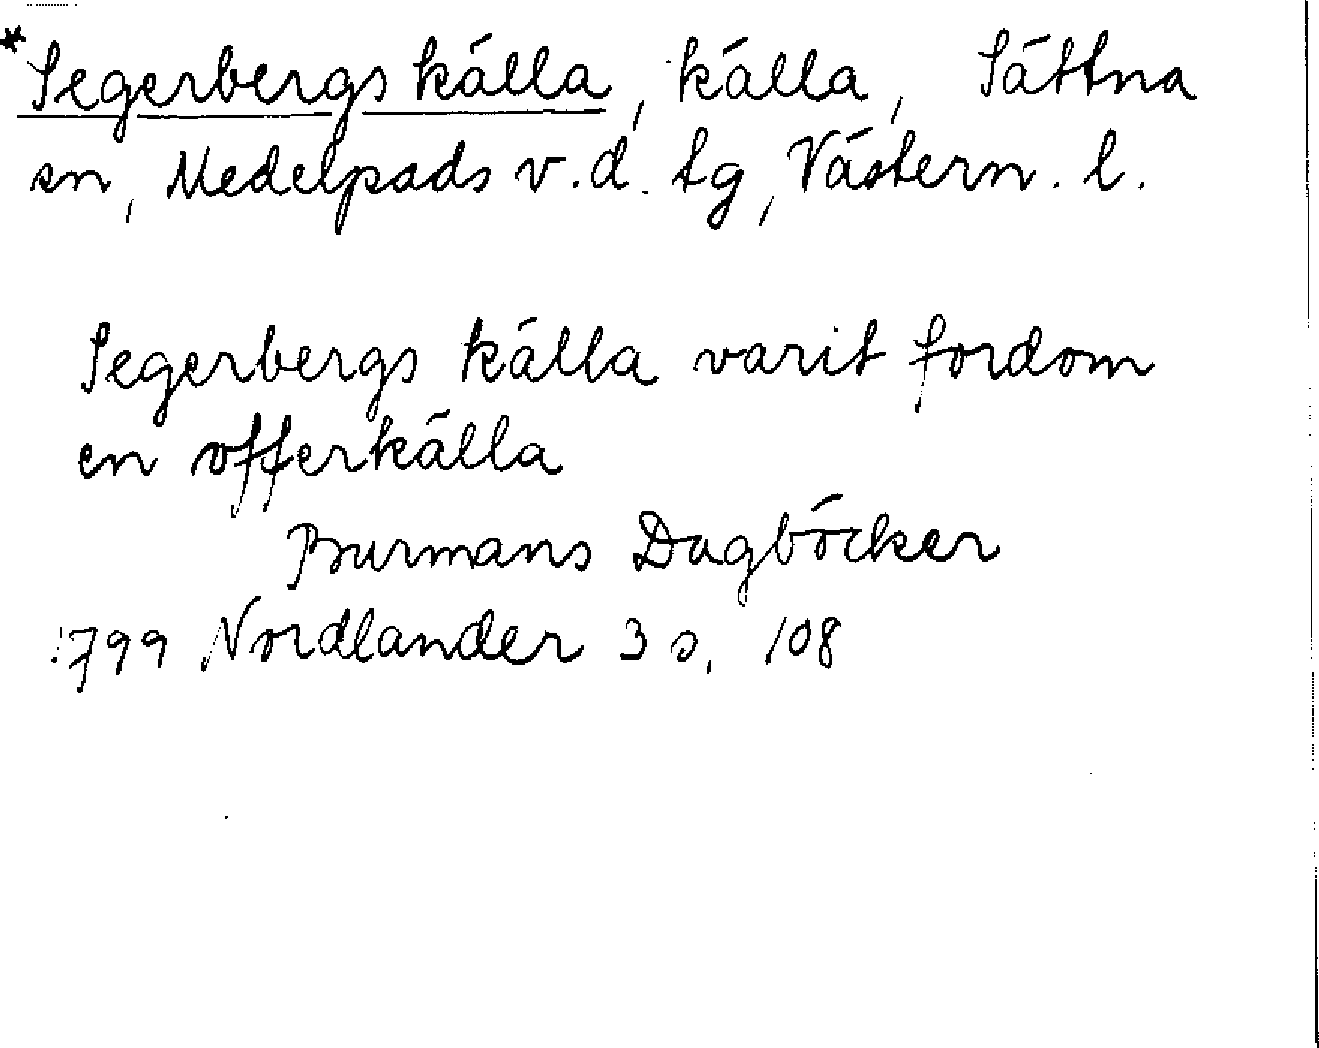 *Segerbergs källa, källa, Sättna
sn, Medelpads v.d. tg, Västern. l.
Segerbergs källa varit fordom
en offerkälla
Burmans Dagböcker
1799 Nordlander 3 s. 108